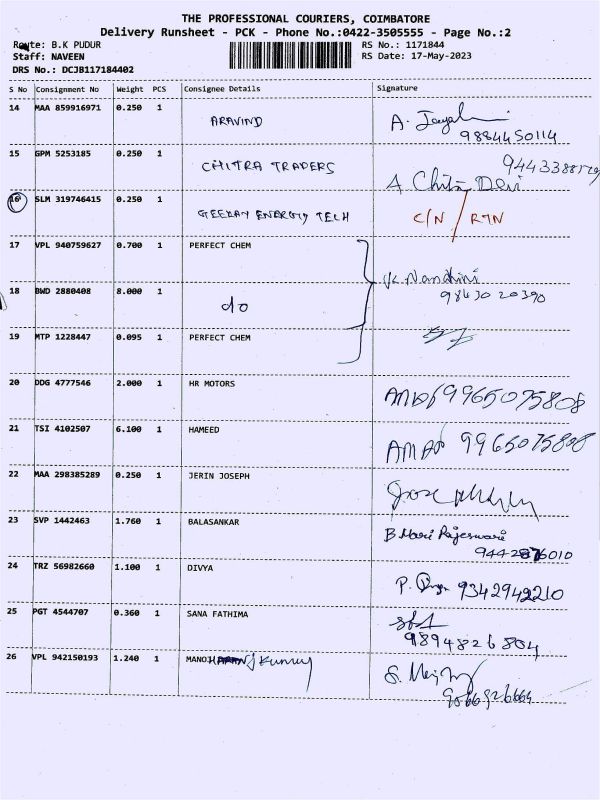 THE PROFESSIONAL COURIERS, COIMBATORE
Delivery Runsheet - PCK - Phone No.:0422-3505555 - Page No.:2
Route: B.K PUDUR RS No.: 1171844
Staff: NAVEEN RS Date: 17-May-2023
DRS No.: DCJB117184402
S No Consignment No Weight PCS Consignee Details Signature
14 MAA 859916971 0.250 1 ARAVIND A.
9884450114
15 GPM 5253185 0.250 1 CHITRA TRADERS
A Chitra Devi
16 SLM 319746415 0.250 1 GEEKAY ENERGY TECH C/N / RTN
17 VPL 940759627 0.700 1 PERFECT CHEM
V. Nandhini
18 BWD 2880408 8.000 1 do 98430 20390
19 MTP 1228447 0.095 1 PERFECT CHEM
20 DDG 4777546 2.000 1 HR MOTORS 9965075808
21 TSI 4102507 6.100 1 HAMEED 9965075808
22 MAA 298385289 0.250 1 JERIN JOSEPH
23 SVP 1442463 1.760 1 BALASANKAR B Hari Rajeswari
24 TRZ 56982660 1.100 1 DIVYA P. 9342942210
25 PGT 4544707 0.360 1 SANA FATHIMA
9894826804
26 VPL 942150193 1.240 1 MANOJ Kumar S.